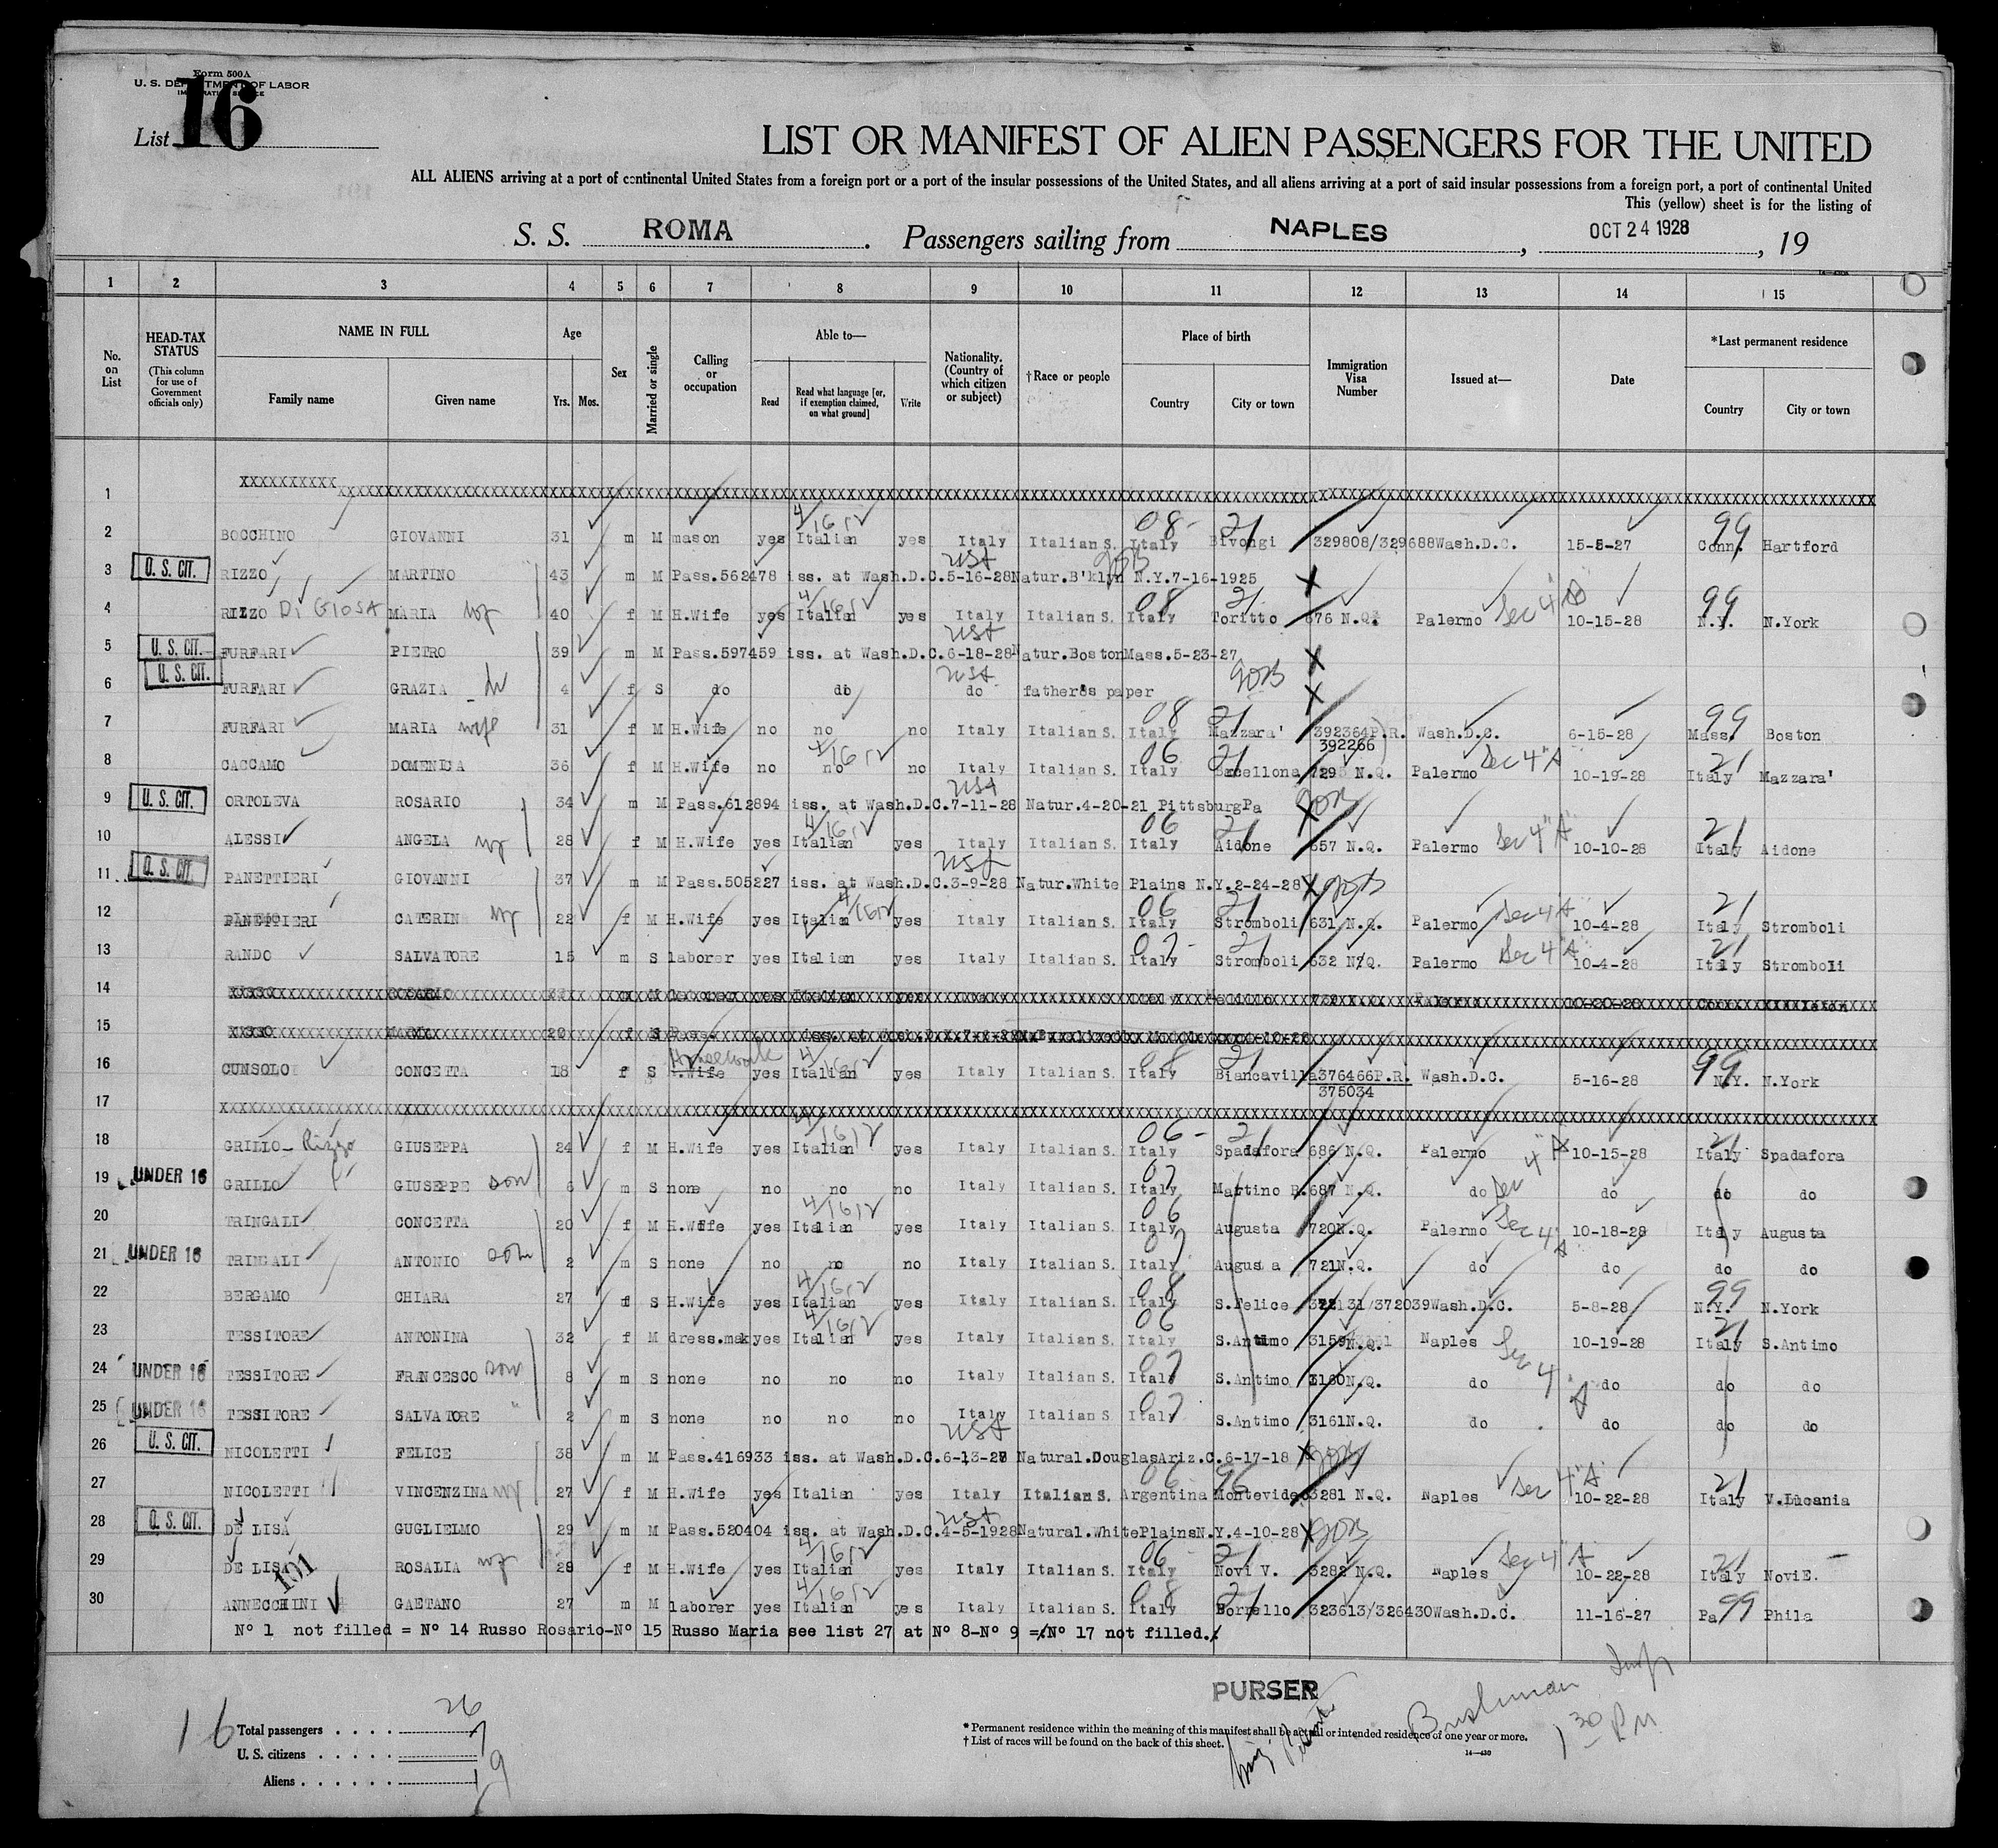 Form 500A
U. S. DEPARTMENT OF LABOR
IMMIGRATION SERVICE
List 16
LIST OR MANIFEST OF ALIEN PASSENGERS FOR THE UNITED
ALL ALIENS arriving at a port of continental United States from a foreign port or a port of the insular possessions of the United States, and all aliens arriving at a port of said insular possessions from a foreign port, a port of continental United
This (yellow) sheet is for the listing of
S. S. ROMA . Passengers sailing from NAPLES , OCT 24 1928 , 19
1 2 3 4 5 6 7 8 9 10 11 12 13 14 15
No. on List HEAD-TAX STATUS (This column for use of Government officials only) NAME IN FULL Family name Given name Age Yrs. Mos. Sex Married or single Calling or occupation Able to— Read Read what language [or, if exemption claimed, on what ground] Write Nationality. (Country of which citizen or subject) †Race or people Place of birth Country City or town Immigration Visa Number Issued at— Date *Last permanent residence Country City or town
1
2 BOCCHINO GIOVANNI 31 m M mason yes Italian yes Italy Italian S. Italy Bivongi 329808/329688 Wash.D.C. 15-5-27 Conn. Hartford
3 U. S. CIT. RIZZO MARTINO 43 m M Pass.562478 iss. at Wash.D.C.5-16-28 Natur.B'klyn N.Y.7-16-1925
4 RIZZO Di GIOSA MARIA 40 f M H.Wife yes Italian yes Italy Italian S. Italy Toritto 676 N.Q. Palermo Sec 4"A" 10-15-28 N.Y. N.York
5 U. S. CIT. FURFARI PIETRO 39 m M Pass.597459 iss. at Wash.D.C.6-18-28 Natur.Boston Mass.5-23-27
6 U. S. CIT. FURFARI GRAZIA 4 f S do do do father's paper
7 FURFARI MARIA wife 31 f M H.Wife no no no Italy Italian S. Italy Mazzara' 392364P.R. 392266 Wash.D.C. 6-15-28 Mass. Boston
8 CACCAMO DOMENICA 36 f M H.Wife no no no Italy Italian S. Italy Barcellona 729 N.Q. Palermo Sec 4"A 10-19-28 Italy Mazzara'
9 U. S. CIT. ORTOLEVA ROSARIO 34 m M Pass.612894 iss. at Wash.D.C.7-11-28 Natur.4-20-21 Pittsburg Pa
10 ALESSI ANGELA 28 f M H.Wife yes Italian yes Italy Italian S. Italy Aidone 657 N.Q. Palermo Sec 4"A" 10-10-28 Italy Aidone
11 U. S. CIT. PANETTIERI GIOVANNI 37 m M Pass.505227 iss. at Wash.D.C.3-9-28 Natur.White Plains N.Y.2-24-28
12 PANETTIERI CATERIN 22 f M H.Wife yes Italian yes Italy Italian S. Italy Stromboli 631 N.Q. Palermo Sec 4"A" 10-4-28 Italy Stromboli
13 RANDO SALVATORE 15 m S laborer yes Italian yes Italy Italian S. Italy Stromboli 632 N.Q. Palermo Sec 4"A" 10-4-28 Italy Stromboli
14
15
16 CUNSOLO CONCETTA 18 f S Housework H.Wife yes Italian yes Italy Italian S. Italy Biancavilla 376466P.R. 375034 Wash.D.C. 5-16-28 N.Y. N.York
17
18 GRILLO - Rizzo GIUSEPPA 24 f M H.Wife yes Italian yes Italy Italian S. Italy Spadafora 686 N.Q. Palermo 10-15-28 Italy Spadafora
19 UNDER 16 GRILLO GIUSEPPE son 6 m S none no no no Italy Italian S. Italy Martino B. 687 N.Q. do Sec 4"A do do do
20 TRINGALI CONCETTA 20 f M H.Wife yes Italian yes Italy Italian S. Italy Augusta 720N.Q. Palermo Sec 4"A 10-18-28 Italy Augusta
21 UNDER 16 TRINGALI ANTONIO son 2 m S none no no no Italy Italian S. Italy Augusta 721N.Q. do do do do
22 BERGAMO CHIARA 27 f S H.Wife yes Italian yes Italy Italian S. Italy S.Felice 372131/372039 Wash.D.C. 5-8-28 N.Y. N.York
23 TESSITORE ANTONINA 32 f M dress.mak yes Italian yes Italy Italian S. Italy S.Antimo 3159N.Q. Naples Sec 4 A 10-19-28 Italy S.Antimo
24 UNDER 16 TESSITORE FRANCESCO son 8 m S none no no no Italy Italian S. Italy S.Antimo 3160N.Q. do do do do
25 UNDER 16 TESSITORE SALVATORE " 2 m S none no no no Italy Italian S. Italy S.Antimo 3161N.Q. do do do do
26 U. S. CIT. NICOLETTI FELICE 38 m M Pass.416933 iss. at Wash.D.C.6-13-27 Natural.Douglas Ariz.C.6-17-18
27 NICOLETTI VINCENZINA 27 f M H.Wife yes Italian yes Italy Italian S. Argentina Montevideo 3281 N.Q. Naples Sec 4"A" 10-22-28 Italy V.Lucania
28 U. S. CIT. DE LISA GUGLIELMO 29 m M Pass.520404 iss. at Wash.D.C.4-5-1928 Natural.WhitePlains N.Y.4-10-28
29 DE LISA ROSALIA 28 f M H.Wife yes Italian yes Italy Italian S. Italy Novi V. 3282 N.Q. Naples Sec 4"A" 10-22-28 Italy NoviE.
30 ANNECCHINI GAETANO 27 m M laborer yes Italian yes Italy Italian S. Italy Borrello 323613/326430 Wash.D.C. 11-16-27 Pa Phila
Nº 1 not filled = Nº 14 Russo Rosario-Nº 15 Russo Maria see list 27 at Nº 8-Nº 9 =/Nº 17 not filled./
PURSER
16 Total passengers . . . . 26
U. S. citizens . . . . . 7
Aliens . . . . . . 19
* Permanent residence within the meaning of this manifest shall be actual or intended residence of one year or more.
† List of races will be found on the back of this sheet.
14—430
Bushman Insp
1 30 P M